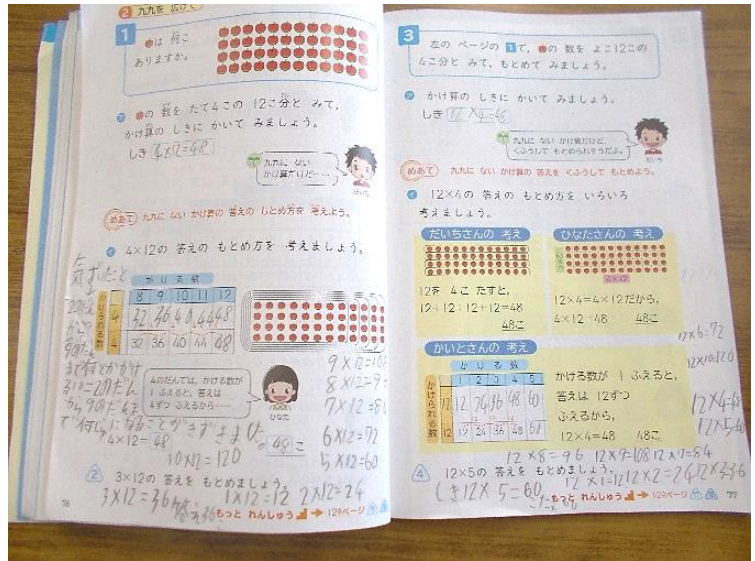 2 九九を 広げて
1
●は 何こ
ありますか。
ア ●の 数を たて4この 12こ分と みて,
かけ算の しきに かいて みましょう。
しき 4×12=48
九九に ない
かけ算だけど……
だいち
めあて 九九に ない かけ算の 答えの もとめ方を 考えよう。
イ 4×12の 答えの もとめ方を 考えましょう。
かける数
8 9 10 11 12
かけられる数
4 32 36 40 44 48
4 32 36 40 44 48
4のだんでは、かける数が
1 ふえると、答えは
4ずつ ふえるから……
ひなた
4×12=48
48こ
10×12=120
9×12=108
8×12=9
7×12=84
6×12=72
5×12=60
2 3×12の 答えを もとめましょう。
3×12=36
1×12=12 2×12=24
もっと れんしゅう → 129ページ
76
3
左の ページの 1で, ●の 数を よこ12この
4こ分と みて, もとめて みましょう。
ア かけ算の しきに かいて みましょう。
しき 12×4=48
九九に ない かけ算だけど、
くふうして もとめられそうだよ。
だいち
めあて 九九に ない かけ算の 答えを くふうして もとめよう。
イ 12×4の 答えの もとめ方を いろいろ
考えましょう。
だいちさんの 考え
12を 4こ たすと,
12+12+12+12=48
48こ
ひなたさんの 考え
4×12
12×4=4×12だから,
4×12=48
48こ
かいとさんの 考え
かける数
1 2 3 4 5
かけられる数
12 12 24 36 48 60
12 12 24 36 48 60
かける数が 1 ふえると,
答えは 12ずつ
ふえるから,
12×4=48 48こ
12×6=72
12×10=120
12×4=48
12×5=60
12×8=96 12×9=108 12×7=84
4 12×5の 答えを もとめましょう。
12×1=12 12×2=24 12×3=36
しき 12×5=60
もっと れんしゅう → 129ページ
77